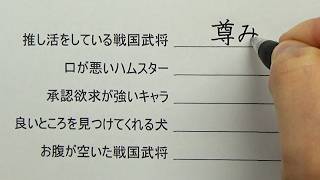 推し活をしている戦国武将 尊み
口が悪いハムスター
承認欲求が強いキャラ
良いところを見つけてくれる犬
お腹が空いた戦国武将